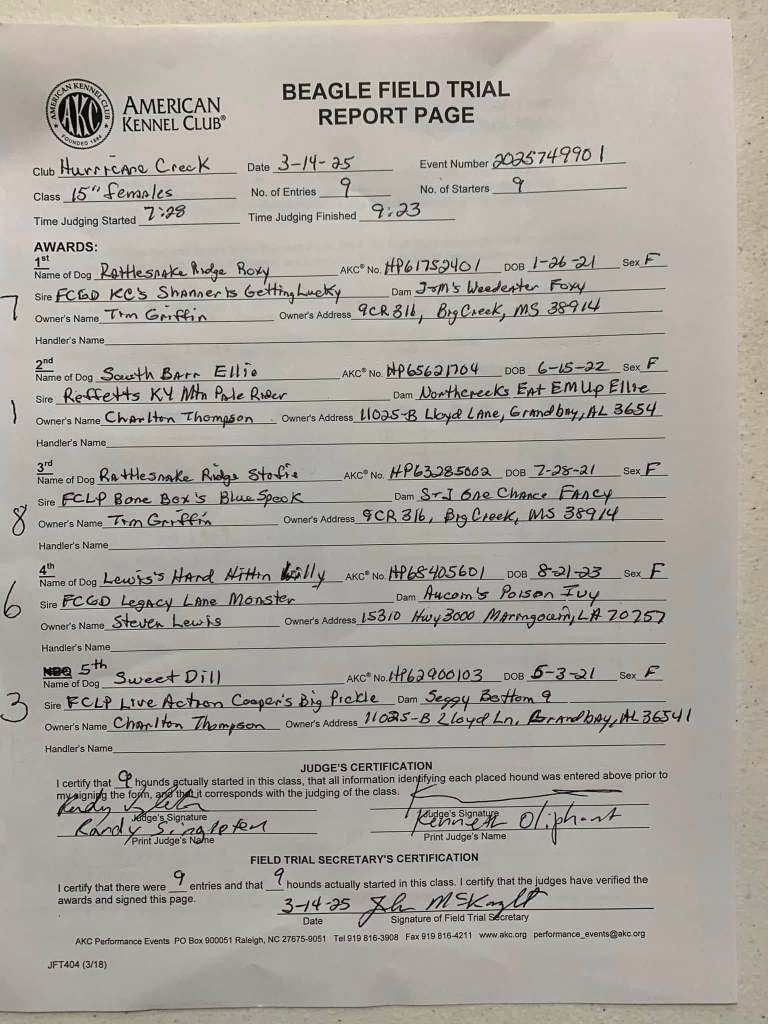 AMERICAN KENNEL CLUB
AKC
FOUNDED 1884
AMERICAN
KENNEL CLUB®
BEAGLE FIELD TRIAL
REPORT PAGE
Club Hurricane Creek Date 3-14-25 Event Number 2025749901
Class 15" females No. of Entries 9 No. of Starters 9
Time Judging Started 7:28 Time Judging Finished 9:23
AWARDS:
1st
Name of Dog Rattlesnake Ridge Roxy AKC® No. HP61752401 DOB 1-26-21 Sex F
7
Sire FCGD KC's Shanner is Getting Lucky Dam J-M's Weedeater Foxy
Owner's Name Tim Griffin Owner's Address 9CR 316, Big Creek, MS 38914
Handler's Name
2nd
Name of Dog South Barr Ellie AKC® No. HP65621704 DOB 6-15-22 Sex F
Sire Reffetts KY Mtn Pale Rider Dam Northcreeks Eat EM Up Ellie
1
Owner's Name Charlton Thompson Owner's Address 11025-B Lloyd Lane, Grandbay, AL 3654
Handler's Name
3rd
Name of Dog Rattlesnake Ridge Stofie AKC® No. HP63285002 DOB 7-28-21 Sex F
Sire FCLP Bone Box's Blue Spook Dam S-J One Chance Fancy
8
Owner's Name Tim Griffin Owner's Address 9CR 316, Big Creek, MS 38914
Handler's Name
4th
Name of Dog Lewis's Hard Hittin Lilly AKC® No. HP68405601 DOB 8-21-23 Sex F
6
Sire FCGD Legacy Lane Monster Dam Aucom's Poison Ivy
Owner's Name Steven Lewis Owner's Address 15310 Hwy 3000 Maringouin, LA 70757
Handler's Name
NBQ 5th
Name of Dog Sweet Dill AKC® No. HP62900103 DOB 5-3-21 Sex F
3
Sire FCLP Live Action Cooper's Big Pickle Dam Seggy Bottom 9
Owner's Name Charlton Thompson Owner's Address 11025-B Lloyd Ln, Grandbay, AL 36541
Handler's Name
JUDGE'S CERTIFICATION
I certify that 9 hounds actually started in this class, that all information identifying each placed hound was entered above prior to
my signing the form, and that it corresponds with the judging of the class.
Randy
Judge's Signature Judge's Signature
Randy Singleton Kenneth Oliphant
Print Judge's Name Print Judge's Name
FIELD TRIAL SECRETARY'S CERTIFICATION
I certify that there were 9 entries and that 9 hounds actually started in this class. I certify that the judges have verified the
awards and signed this page.
3-14-25 John McKnight
Date Signature of Field Trial Secretary
AKC Performance Events PO Box 900051 Raleigh, NC 27675-9051 Tel 919 816-3908 Fax 919 816-4211 www.akc.org performance_events@akc.org
JFT404 (3/18)